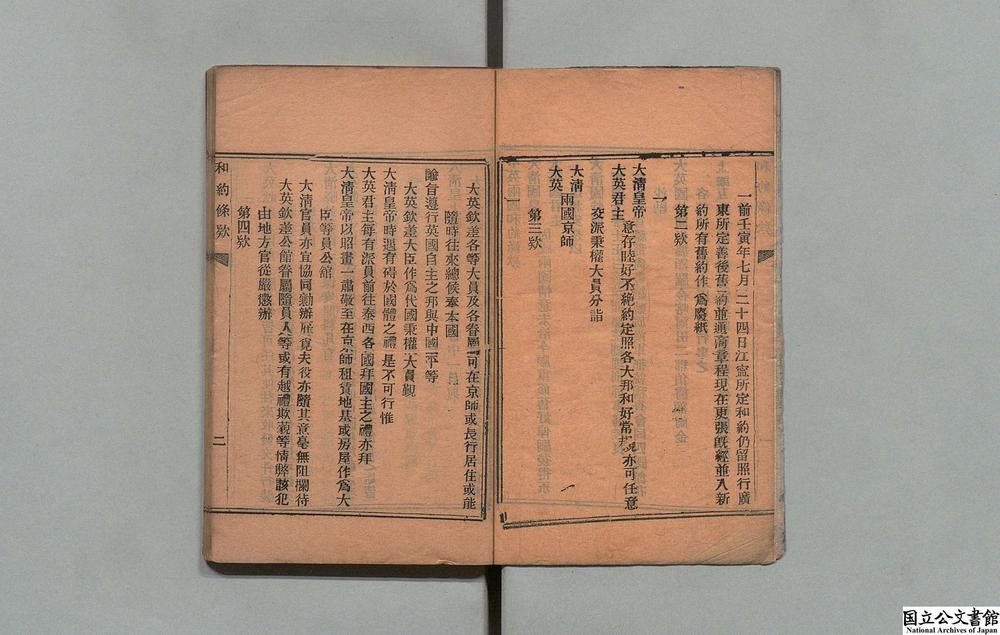 一前壬寅年七月二十四日江寧所定和約仍留照行廣
東所定善後舊約並通商章程現在更張旣經並入新
約所有舊約作為廢紙
第二欵
一
大清皇帝
大英君主
意存睦好不絕約定照各大邦和好常規亦可任意
交派秉權大員分詣
大清
大英
兩國京師
第三欵
一
大英欽差各等大員及各眷屬可在京師或長行居住或能
隨時往來總候奉本國
諭旨遵行英國自主之邦與中國平等
大英欽差大臣作為代國秉權大員覲
大清皇帝時遇有碍於國體之禮是不可行惟
大英君主每有派員前往泰西各國拜國主之禮亦拜
大清皇帝以昭畫一肅敬至在京師租賃地基或房屋作為大
臣等員公館
大清官員亦宜協同勷辦雇覓夫役亦隨其意毫無阻攔待
大英欽差公館眷屬隨員人等或有越禮欺藐等情弊該犯
由地方官從嚴懲辦
第四欵
和約條欵
二
国立公文書館
National Archives of Japan